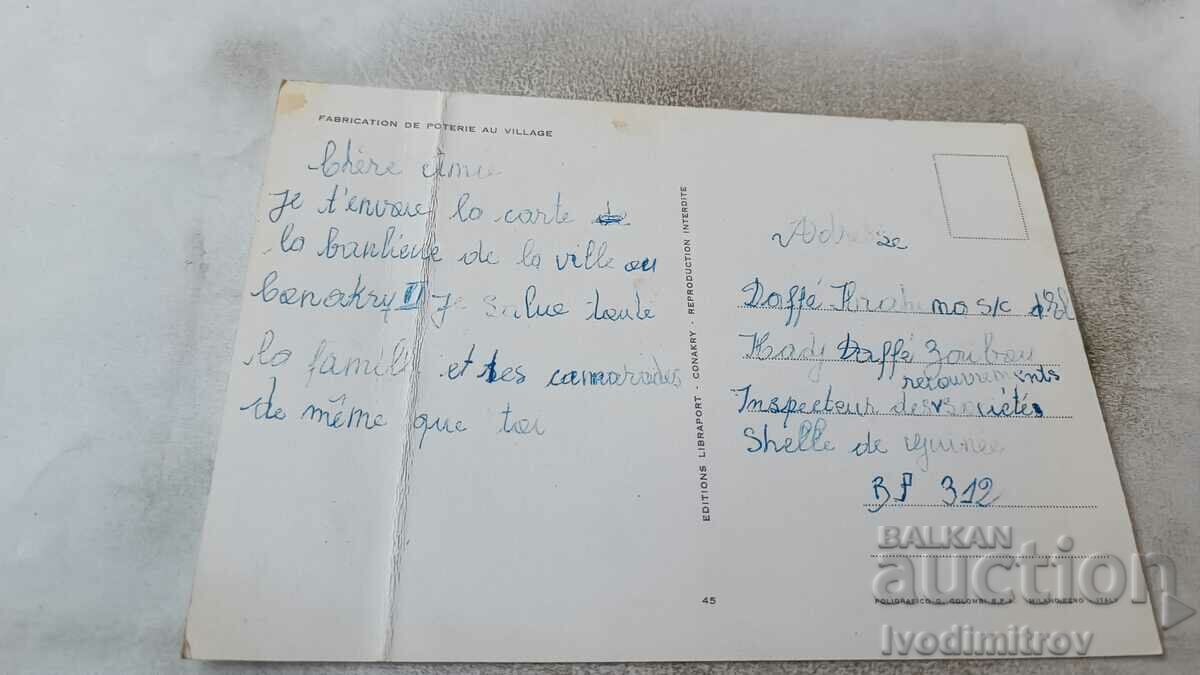 FABRICATION DE POTERIE AU VILLAGE
Chère Amie
Je t'envoie la carte de
la banlieue de la ville ou
Conakry II Je salue toute
la famille et tes camarades
de même que toi
EDITIONS LIBRAPORT - CONAKRY - REPRODUCTION INTERDITE
45
Adresse
Daffé Ibrahima S/C d'El
Hady Daffé
recouvrements
Inspecteur des sociétés
Shelle de Guinée
BP 312
POLIGRAFICO G. COLOMBI S.P.A. - MILANO-PERO - ITALY
BALKAN
auction
Ivodimitrov